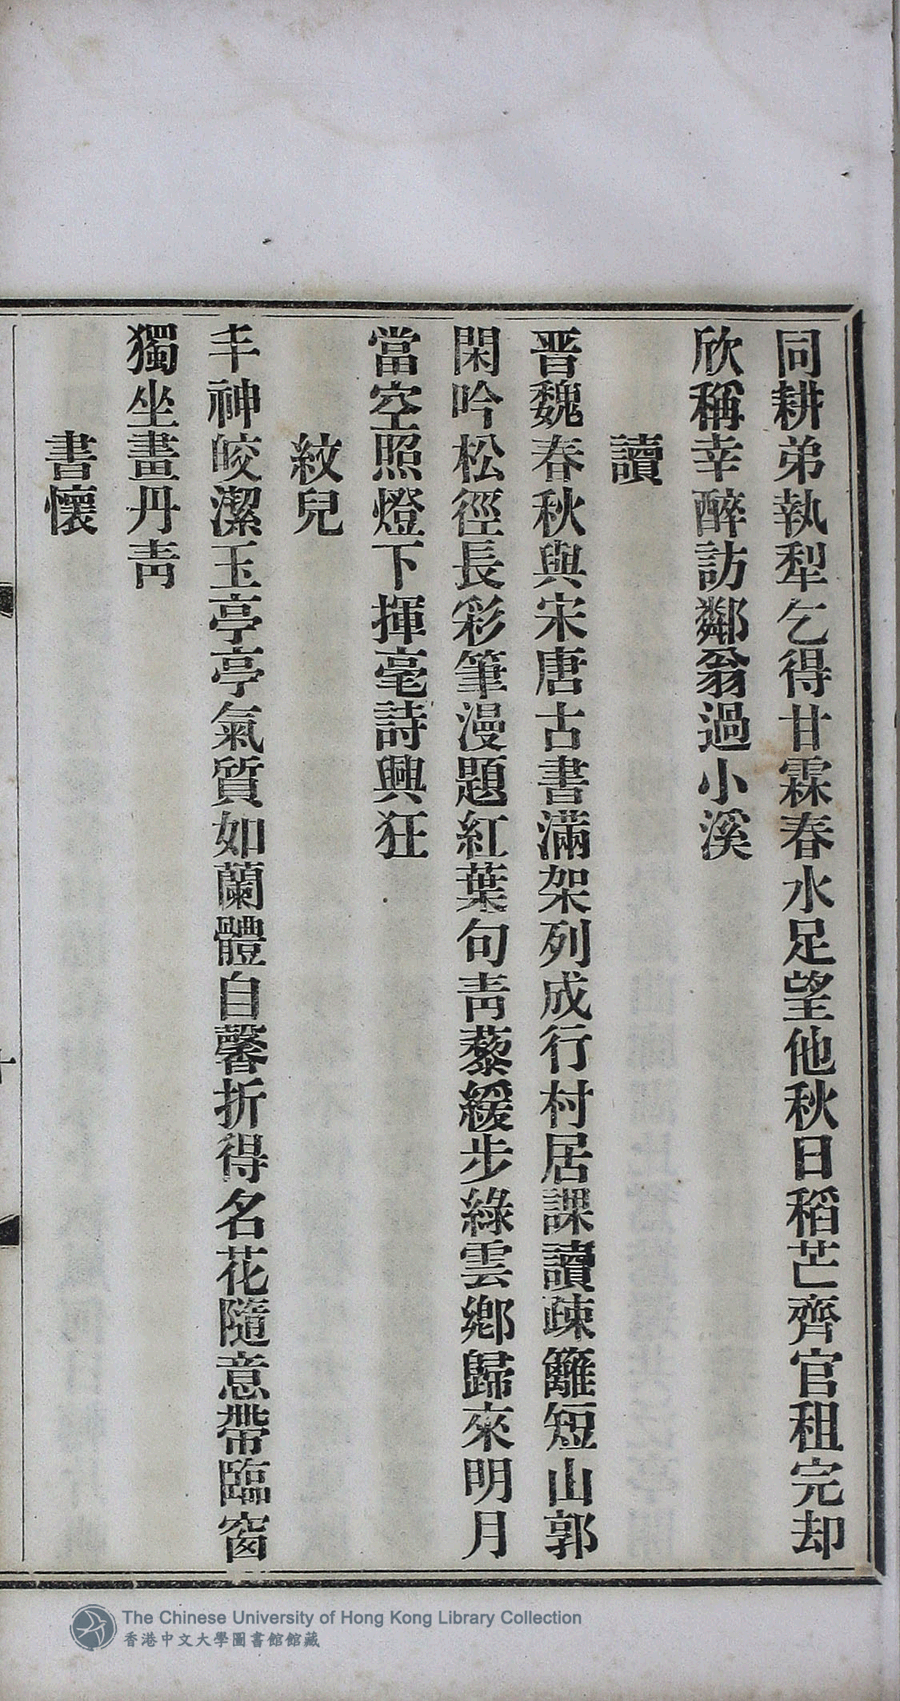 同耕弟執犁乞得甘霖春水足望他秋日稻芒齊官租完却
欣稱幸醉訪鄰翁過小溪
讀
晋魏春秋與宋唐古書滿架列成行村居課讀疎籬短山郭
閑吟松徑長彩筆漫題紅葉句靑藜緩步綠雲鄕歸來明月
當空照燈下揮毫詩興狂
紋兒
丰神皎潔玉亭亭氣質如蘭體自馨折得名花隨意帶臨窗
獨坐畫丹靑
書懷
十
The Chinese University of Hong Kong Library Collection
香港中文大學圖書館館藏